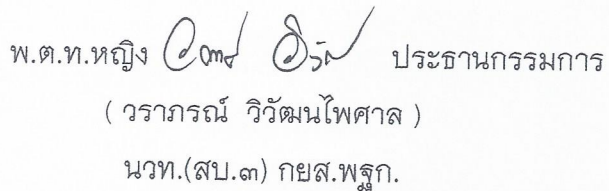 พ.ต.ท.หญิง ประธานกรรมการ
( วราภรณ์ วิวัฒนไพศาล )
นวท.(สบ.๓) กยส.พฐก.